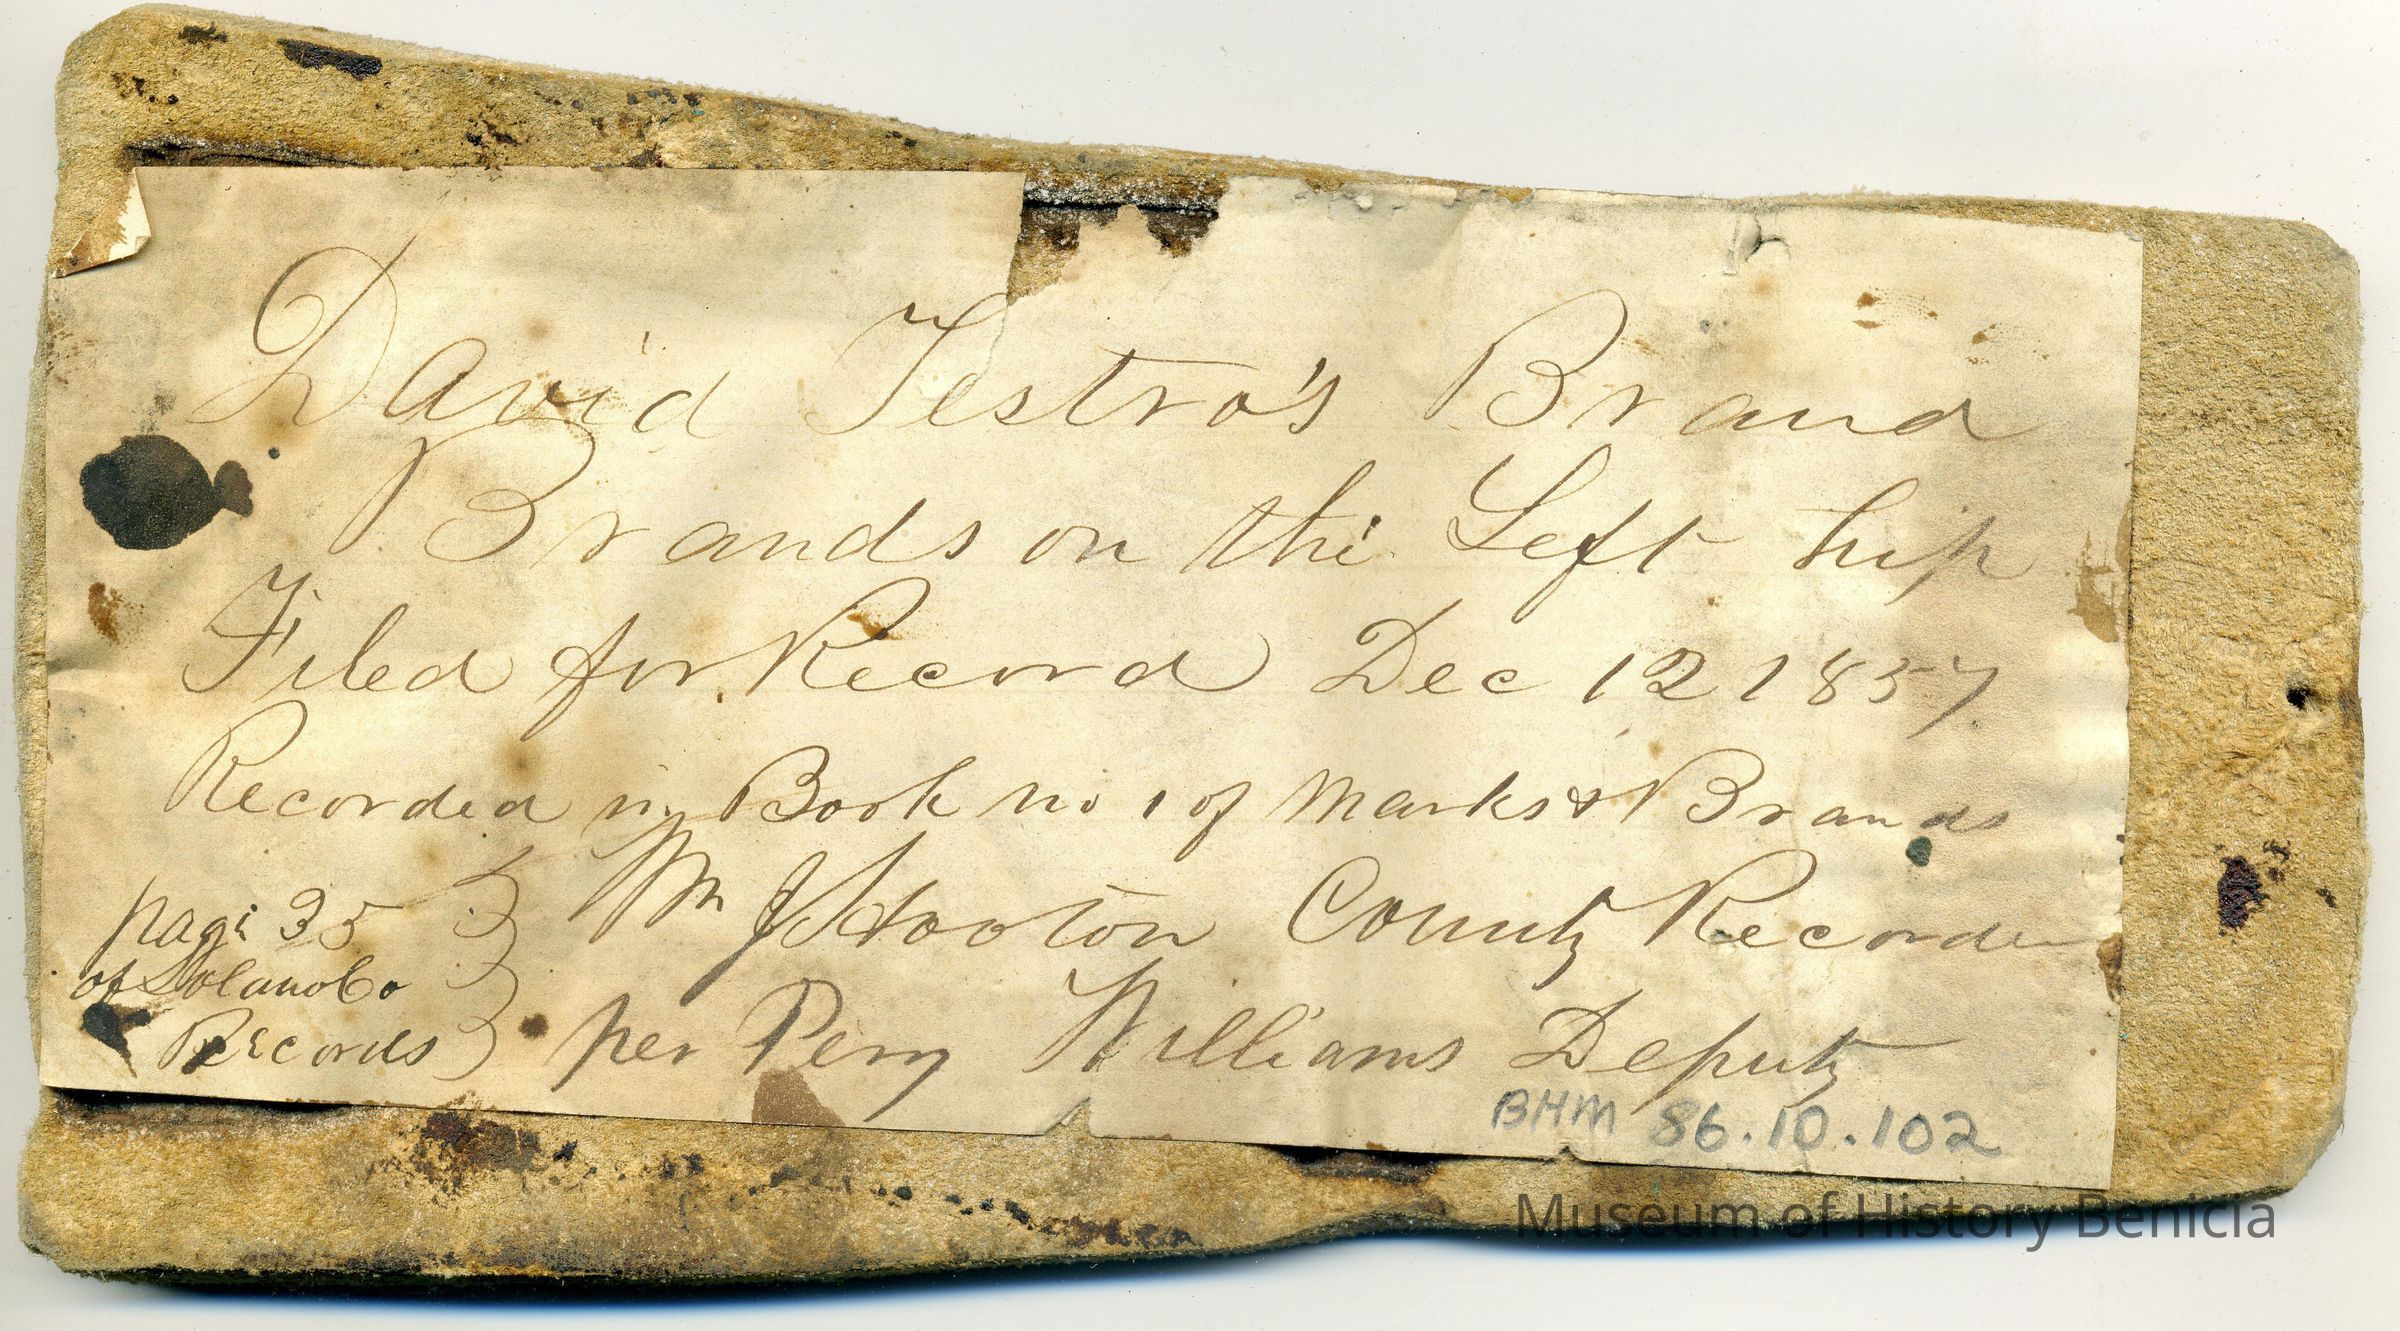 David Testro's Brand
Brands on the Left hip
Filed for Record Dec 12 1857.
Recorded in Book no 1 of Marks & Brands
page 35
of Solano Co
Records
Wm J Hooton County Recorder
per Perry Williams Deputy
BHM 86.10.102
Museum of History Benicia